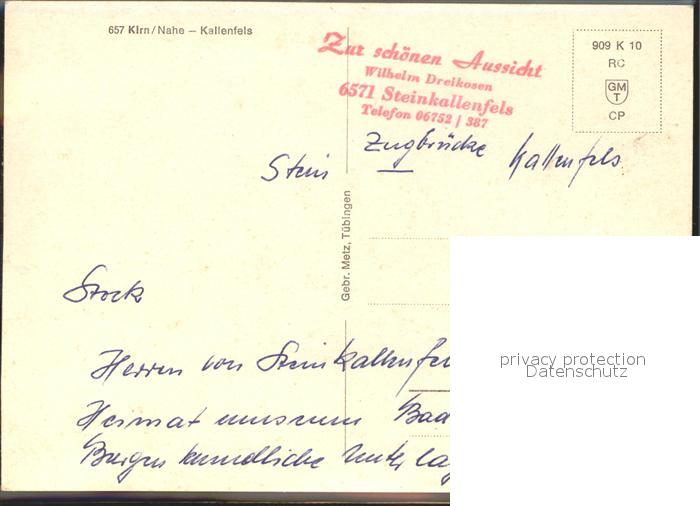 657 Kirn/Nahe – Kallenfels
Zur schönen Aussicht
Wilhelm Dreikosen
6571 Steinkallenfels
Telefon 06752 / 387
909 K 10
RC
GM
T
CP
Stein Zugbrücke Kallenfels
Gebr. Metz, Tübingen
Stock
Herren von Steinkallenfel
Heimatmuseum Bad
Burgenkundliche Unterlag
privacy protection
Datenschutz